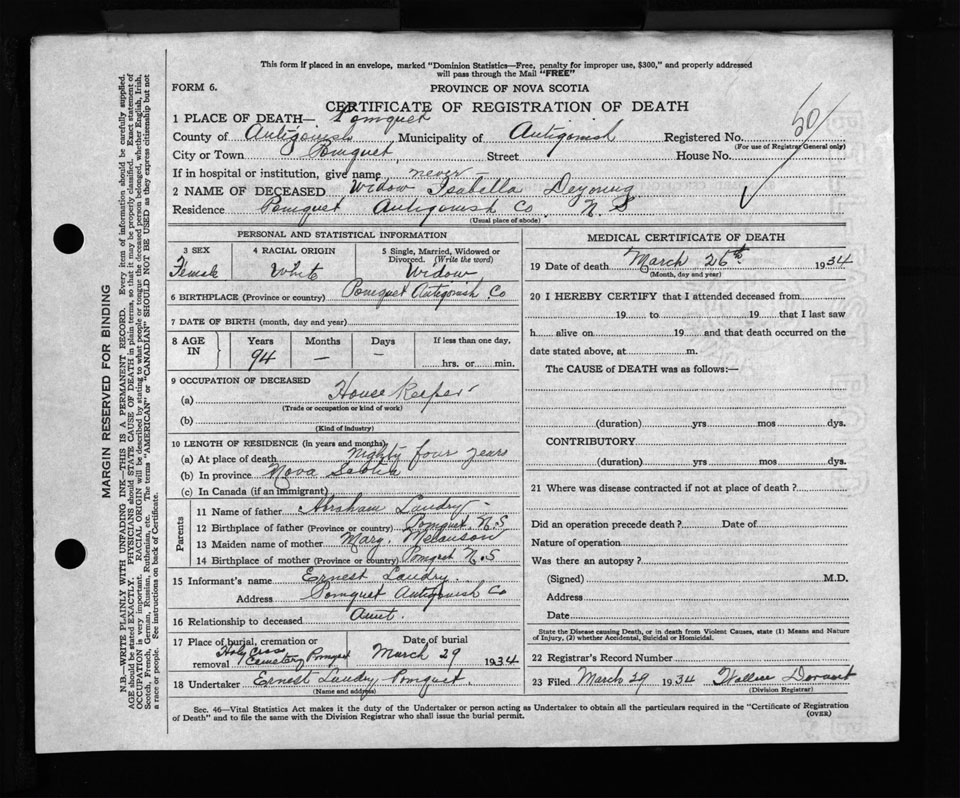 This form if placed in an envelope, marked "Dominion Statistics—Free, penalty for improper use, $300," and properly addressed
will pass through the Mail "FREE"
FORM 6.
PROVINCE OF NOVA SCOTIA
CERTIFICATE OF REGISTRATION OF DEATH
1 PLACE OF DEATH—. Pomquet
County of Antigonish Municipality of Antigonish Registered No.
(For use of Registrar General only)
City or Town Pomquet, Street House No.
If in hospital or institution, give name never
2 NAME OF DECEASED Widow Isabella Deyoung
Residence Pomquet Antigonish Co. N. S
(Usual place of abode)
PERSONAL AND STATISTICAL INFORMATION
3 SEX Female
4 RACIAL ORIGIN White
5 Single, Married, Widowed or
Divorced. (Write the word)
Widow
6 BIRTHPLACE (Province or country) Pomquet Antigonish Co
7 DATE OF BIRTH (month, day and year)
8 AGE IN Years 94 Months — Days — If less than one day, hrs. or min.
9 OCCUPATION OF DECEASED
(a) House Keeper
(Trade or occupation or kind of work)
(b)
(Kind of industry)
10 LENGTH OF RESIDENCE (in years and months)
(a) At place of death Nighty four years
(b) In province Nova Scotia
(c) In Canada (if an immigrant)
Parents
11 Name of father Abraham Landry
12 Birthplace of father (Province or country) Pomquet. N.S
13 Maiden name of mother Marg. Melanson
14 Birthplace of mother (Province or country) Pomqet N.S
15 Informant's name Ernest Landry.
Address Pomquet Antigonish Co
16 Relationship to deceased Aunt.
17 Place of burial, cremation or
removal Holy Cross
Cemetery Pomqet
Date of burial
March 29 1934
18 Undertaker Ernest Landry Pomquet.
(Name and address)
MEDICAL CERTIFICATE OF DEATH
19 Date of death March 26th 1934
(Month, day and year)
20 I HEREBY CERTIFY that I attended deceased from
19 to 19 that I last saw
h alive on 19 and that death occurred on the
date stated above, at m.
The CAUSE of DEATH was as follows:—
(duration) yrs mos dys.
CONTRIBUTORY
(duration) yrs mos dys.
21 Where was disease contracted if not at place of death?
Did an operation precede death? Date of
Nature of operation
Was there an autopsy?
(Signed) M.D.
Address
Date
State the Disease causing Death, or in death from Violent Causes, state (1) Means and Nature
of Injury, (2) whether Accidental, Suicidal or Homicidal.
22 Registrar's Record Number
23 Filed March 29 1934 Wallace
(Division Registrar)
Sec. 46—Vital Statistics Act makes it the duty of the Undertaker or person acting as Undertaker to obtain all the particulars required in the "Certificate of Registration
of Death" and to file the same with the Division Registrar who shall issue the burial permit.
(OVER)
MARGIN RESERVED FOR BINDING
N.B.—WRITE PLAINLY WITH UNFADING INK—THIS IS A PERMANENT RECORD. Every item of information should be carefully supplied.
AGE should be stated EXACTLY. PHYSICIANS should STATE CAUSE OF DEATH in plain terms, so that it may be properly classified. Exact statement of
OCCUPATION is very important. RACIAL ORIGIN will be described by stating to what people or tongue the deceased person belonged, whether English, Irish,
Scotch, French, German, Russian, Ruthenian, etc. The terms "AMERICAN" or "CANADIAN" SHOULD NOT BE USED as they express citizenship but not
a race or people. See instructions on back of Certificate.